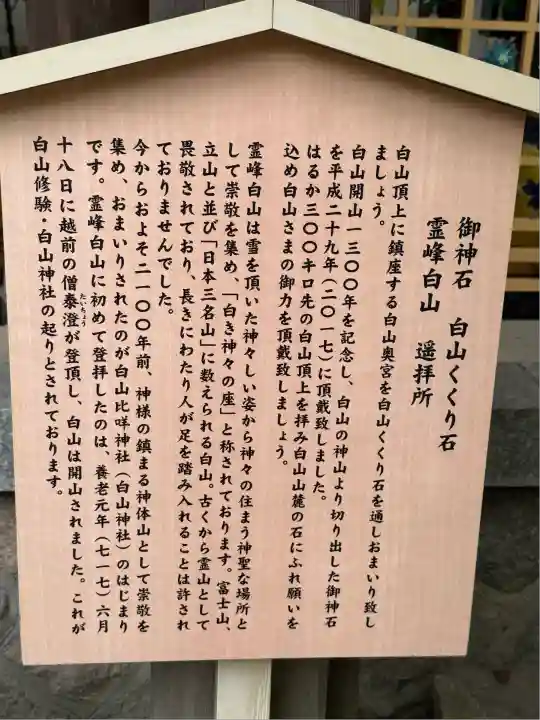 御神石　白山くくり石
霊峰白山　遥拝所
白山頂上に鎮座する白山奥宮を白山くくり石を通しおまいり致し
ましょう。
白山開山一三〇〇年を記念し、白山の神山より切り出した御神石
を平成二十九年（二〇一七）に頂戴致しました。
はるか三〇〇キロ先の白山頂上を拝み白山山麓の石にふれ願いを
込め白山さまの御力を頂戴致しましょう。
霊峰白山は雪を頂いた神々しい姿から神々の住まう神聖な場所と
して崇敬を集め、「白き神々の座」と称されております。富士山、
立山と並び「日本三名山」に数えられる白山。古くから霊山として
畏敬されており、長きにわたり人が足を踏み入れることは許され
ておりませんでした。
今からおよそ二一〇〇年前、神様の鎮まる神体山として崇敬を
集め、おまいりされたのが白山比咩神社（白山神社）のはじまり
です。霊峰白山に初めて登拝したのは、養老元年（七一七）六月
十八日に越前の僧泰澄が登頂し、白山は開山されました。これが
たいちょう
白山修験・白山神社の起りとされております。